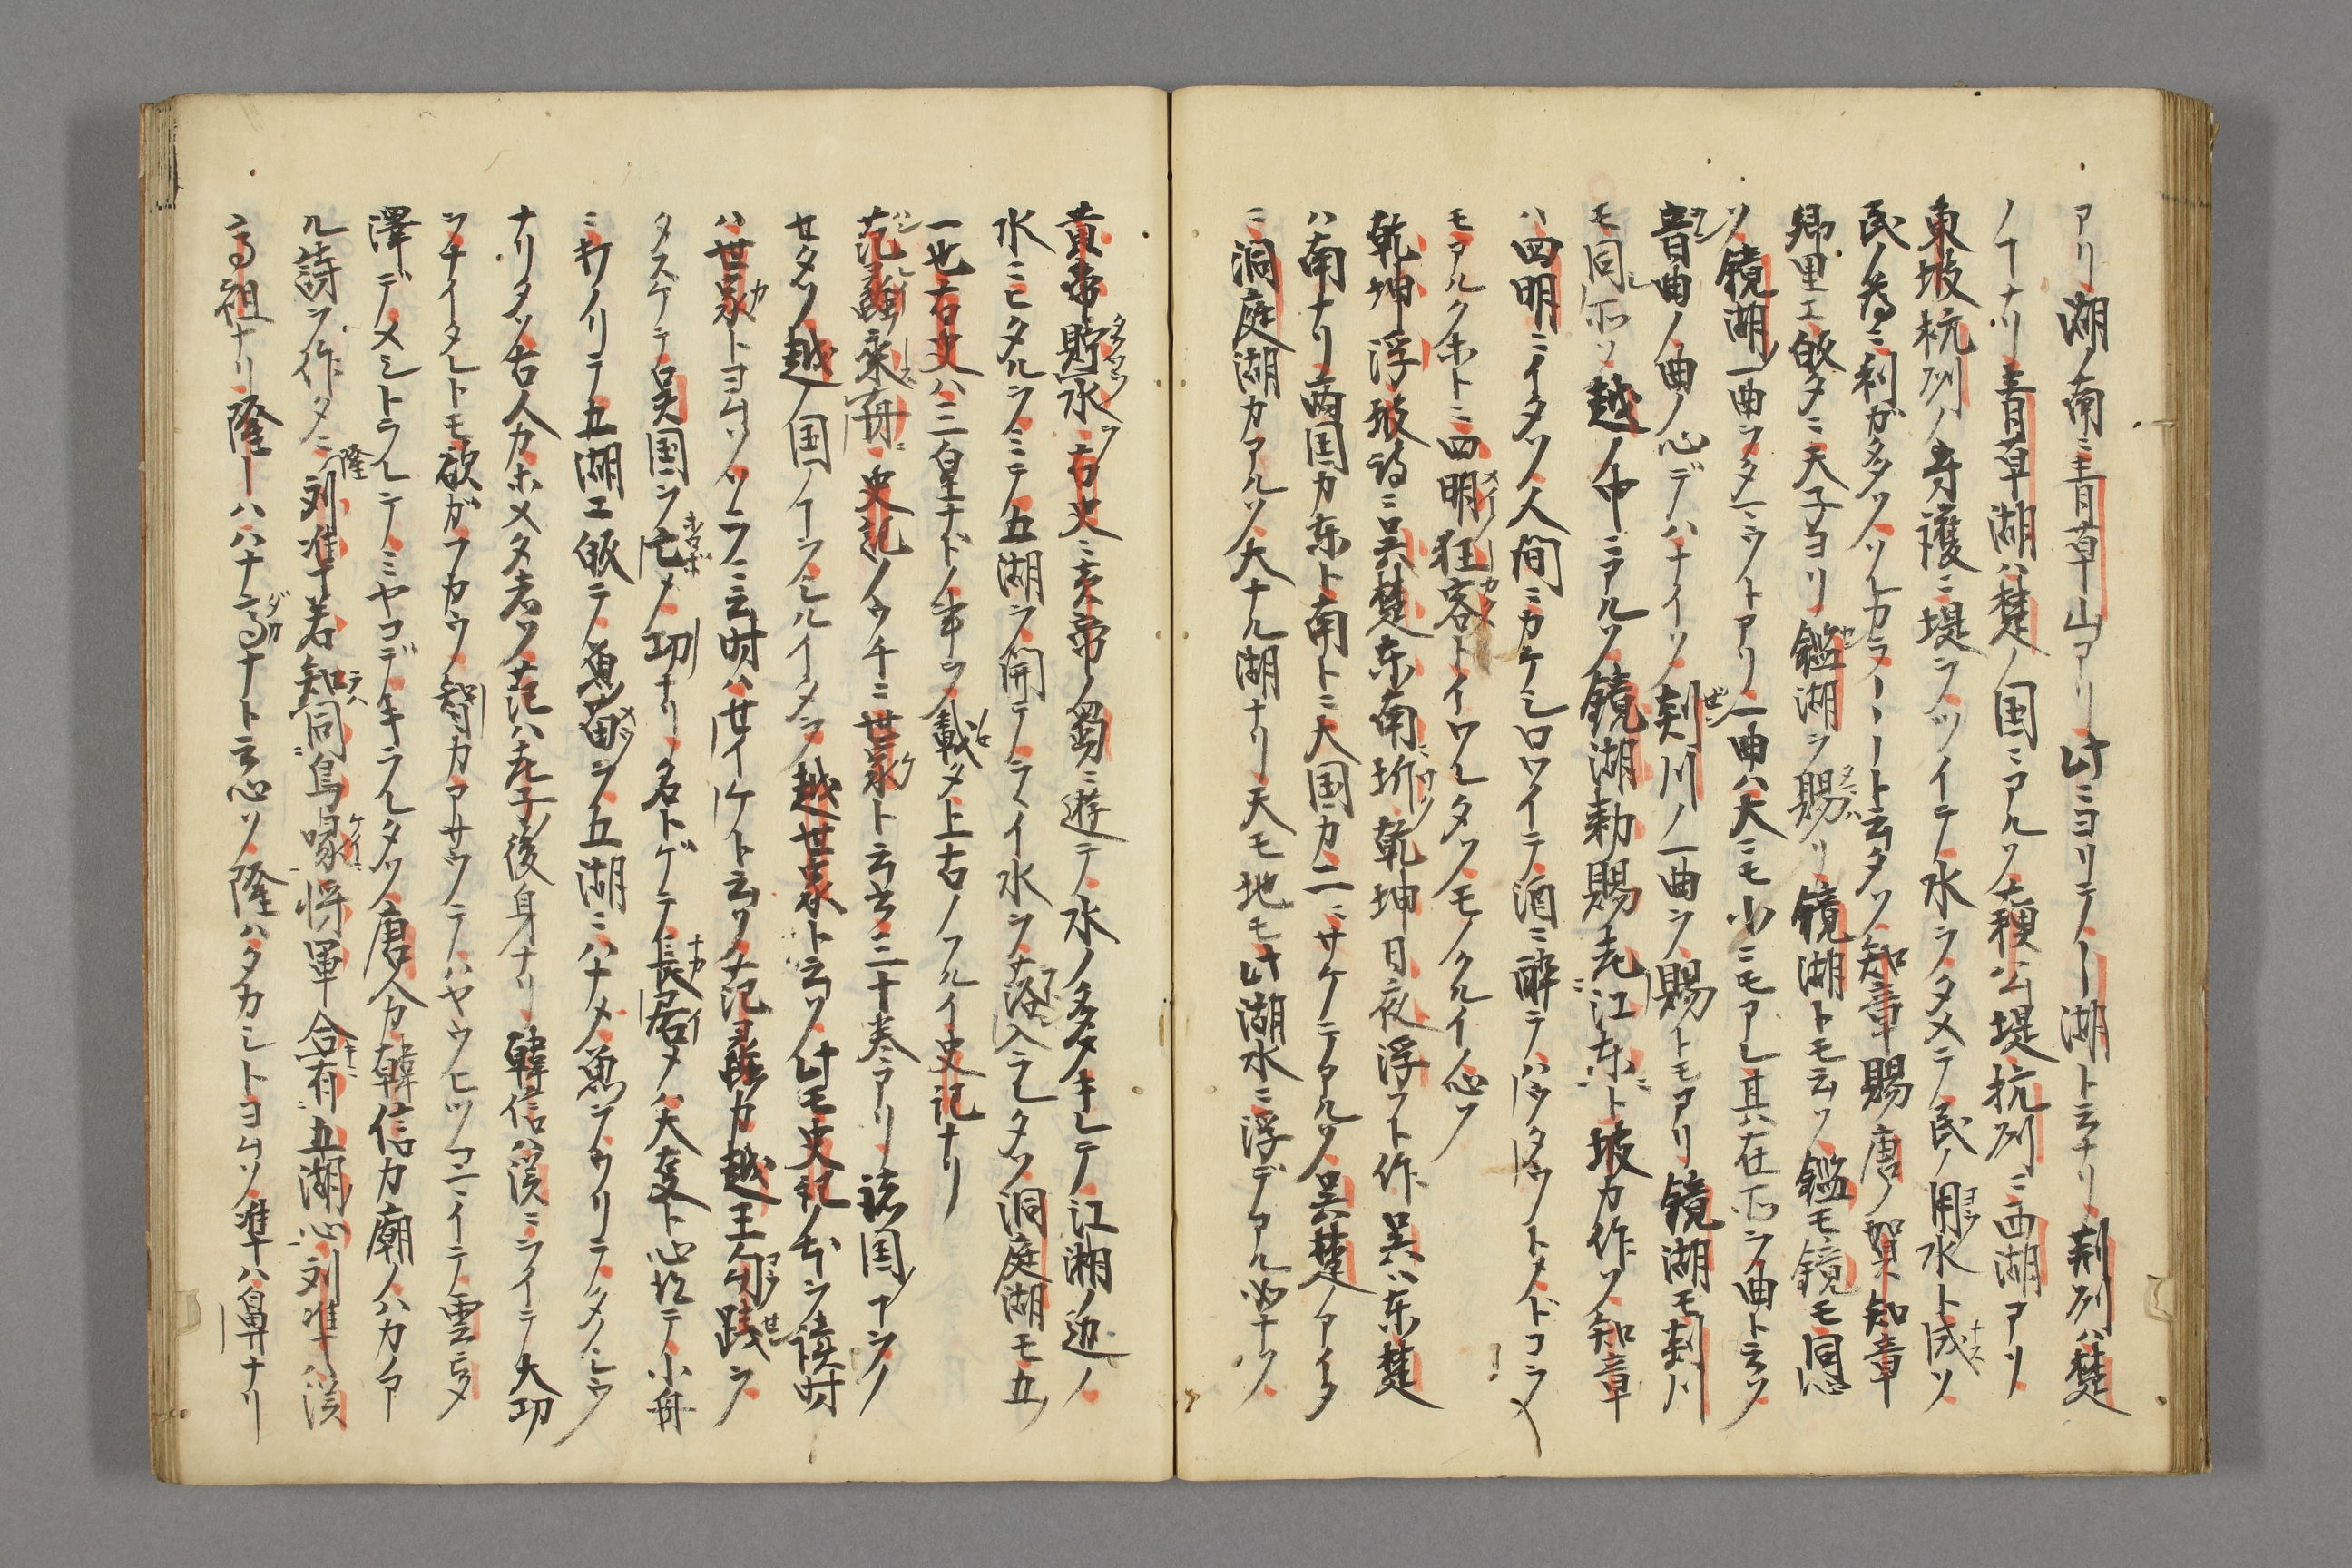 アリ湖ノ南ニ青草山アリ此ニヨリテノ｜湖ト云ナリ荊州ハ楚
ノ丅ナリ青草湖ハ楚ノ国ニアルソ蘓公堤抗州ニ西湖アリ
東坡杭州ノ守護ニ堤ヲツイテ水ヲタメテ民ノ用水ト成ソ
民ノ為ニ利ガ多ソソレカラ｜｜｜ト云タソ知章賜唐ノ賀知章
郷里エ皈タニ天子ヨリ鑑湖ヲ賜リ鏡湖トモ云ソ鑑モ鏡モ同心
ソ鏡湖ノ一曲ヲタマウトアリ一曲ハ大ニモ小ニモアレ其在所ヲ曲ト云ソ
音曲ノ曲ノ心デハナイソ剡川ノ一曲ヲ賜トモアリ鏡湖モ剡川
モ同所ソ越ノ中ニアルソ鏡湖勅賜老江东ト坡カ作ソ知章
ハ四明ニイタソ人間ニカケシロワイテ酒ニ醉テハウタウノトメドコヲ
モアルクホトニ四明狂客トイワレタソモノクルイ心ソ
乾坤浮坡詩ニ呉楚东南坼乾坤日夜浮フト作呉ハ东楚
ハ南ナリ两国カ东ト南トニ大国カ二ニサケテアルソ呉楚ノアイタ
ニ洞庭湖カアルソ大ナル湖ナリ天モ地モ此湖水ニ浮デアル心ナソ
黄帝貯水古史ニ黄帝ノ蜀ニ遊テ水ノ多キレテ江湘ノ边ノ
水ニヒタルヲミテ五湖ヲ開テライ水ヲ落入ラレタソ洞庭湖モ五ノ
一也古史ハ三皇ナドノ事ヲ載メ上古ノフルイ史記ナリ
范蠡乘舟史記ノウチニ世家ト云云三十巻アリ諸国ノ丅ヲノ
セタソ越ノ国ノ丅ヲシルイタヲ越世家ト云ソ此モ史記ノ本ヲ読時
ハ世家トヨムソソラニ云时ハ世イケト云ソ范蠡カ越王勾践ヲ
タスケテ呉国ヲ亡メ功ナリ名トゲテ長居メハ大变ト心比テ小舟
ニ打ノリテ五湖エ皈テ魚苗ヲ五湖ニハナメ魚ヲウリテタノシウ
ナリタソ古人カホメタ者ソ范ハ老子ノ後身ナリ韓信ハ漢ニヲイテ大功
ヲナイタレトモ欲ガフカウ智カアサウテハヤウヒツコミイテ雲夢
澤デメシトラレテミヤコデキラレタソ唐人カ韓信カ廟ノハカノア
ル詩ヲ作タニ刘準若知同鳥喙将軍合有五湖心刘準ハ漢
高祖ナリ隆｜ハハナ高ナト云心ソ隆ハタカシトヨムソ準ハ鼻ナリ